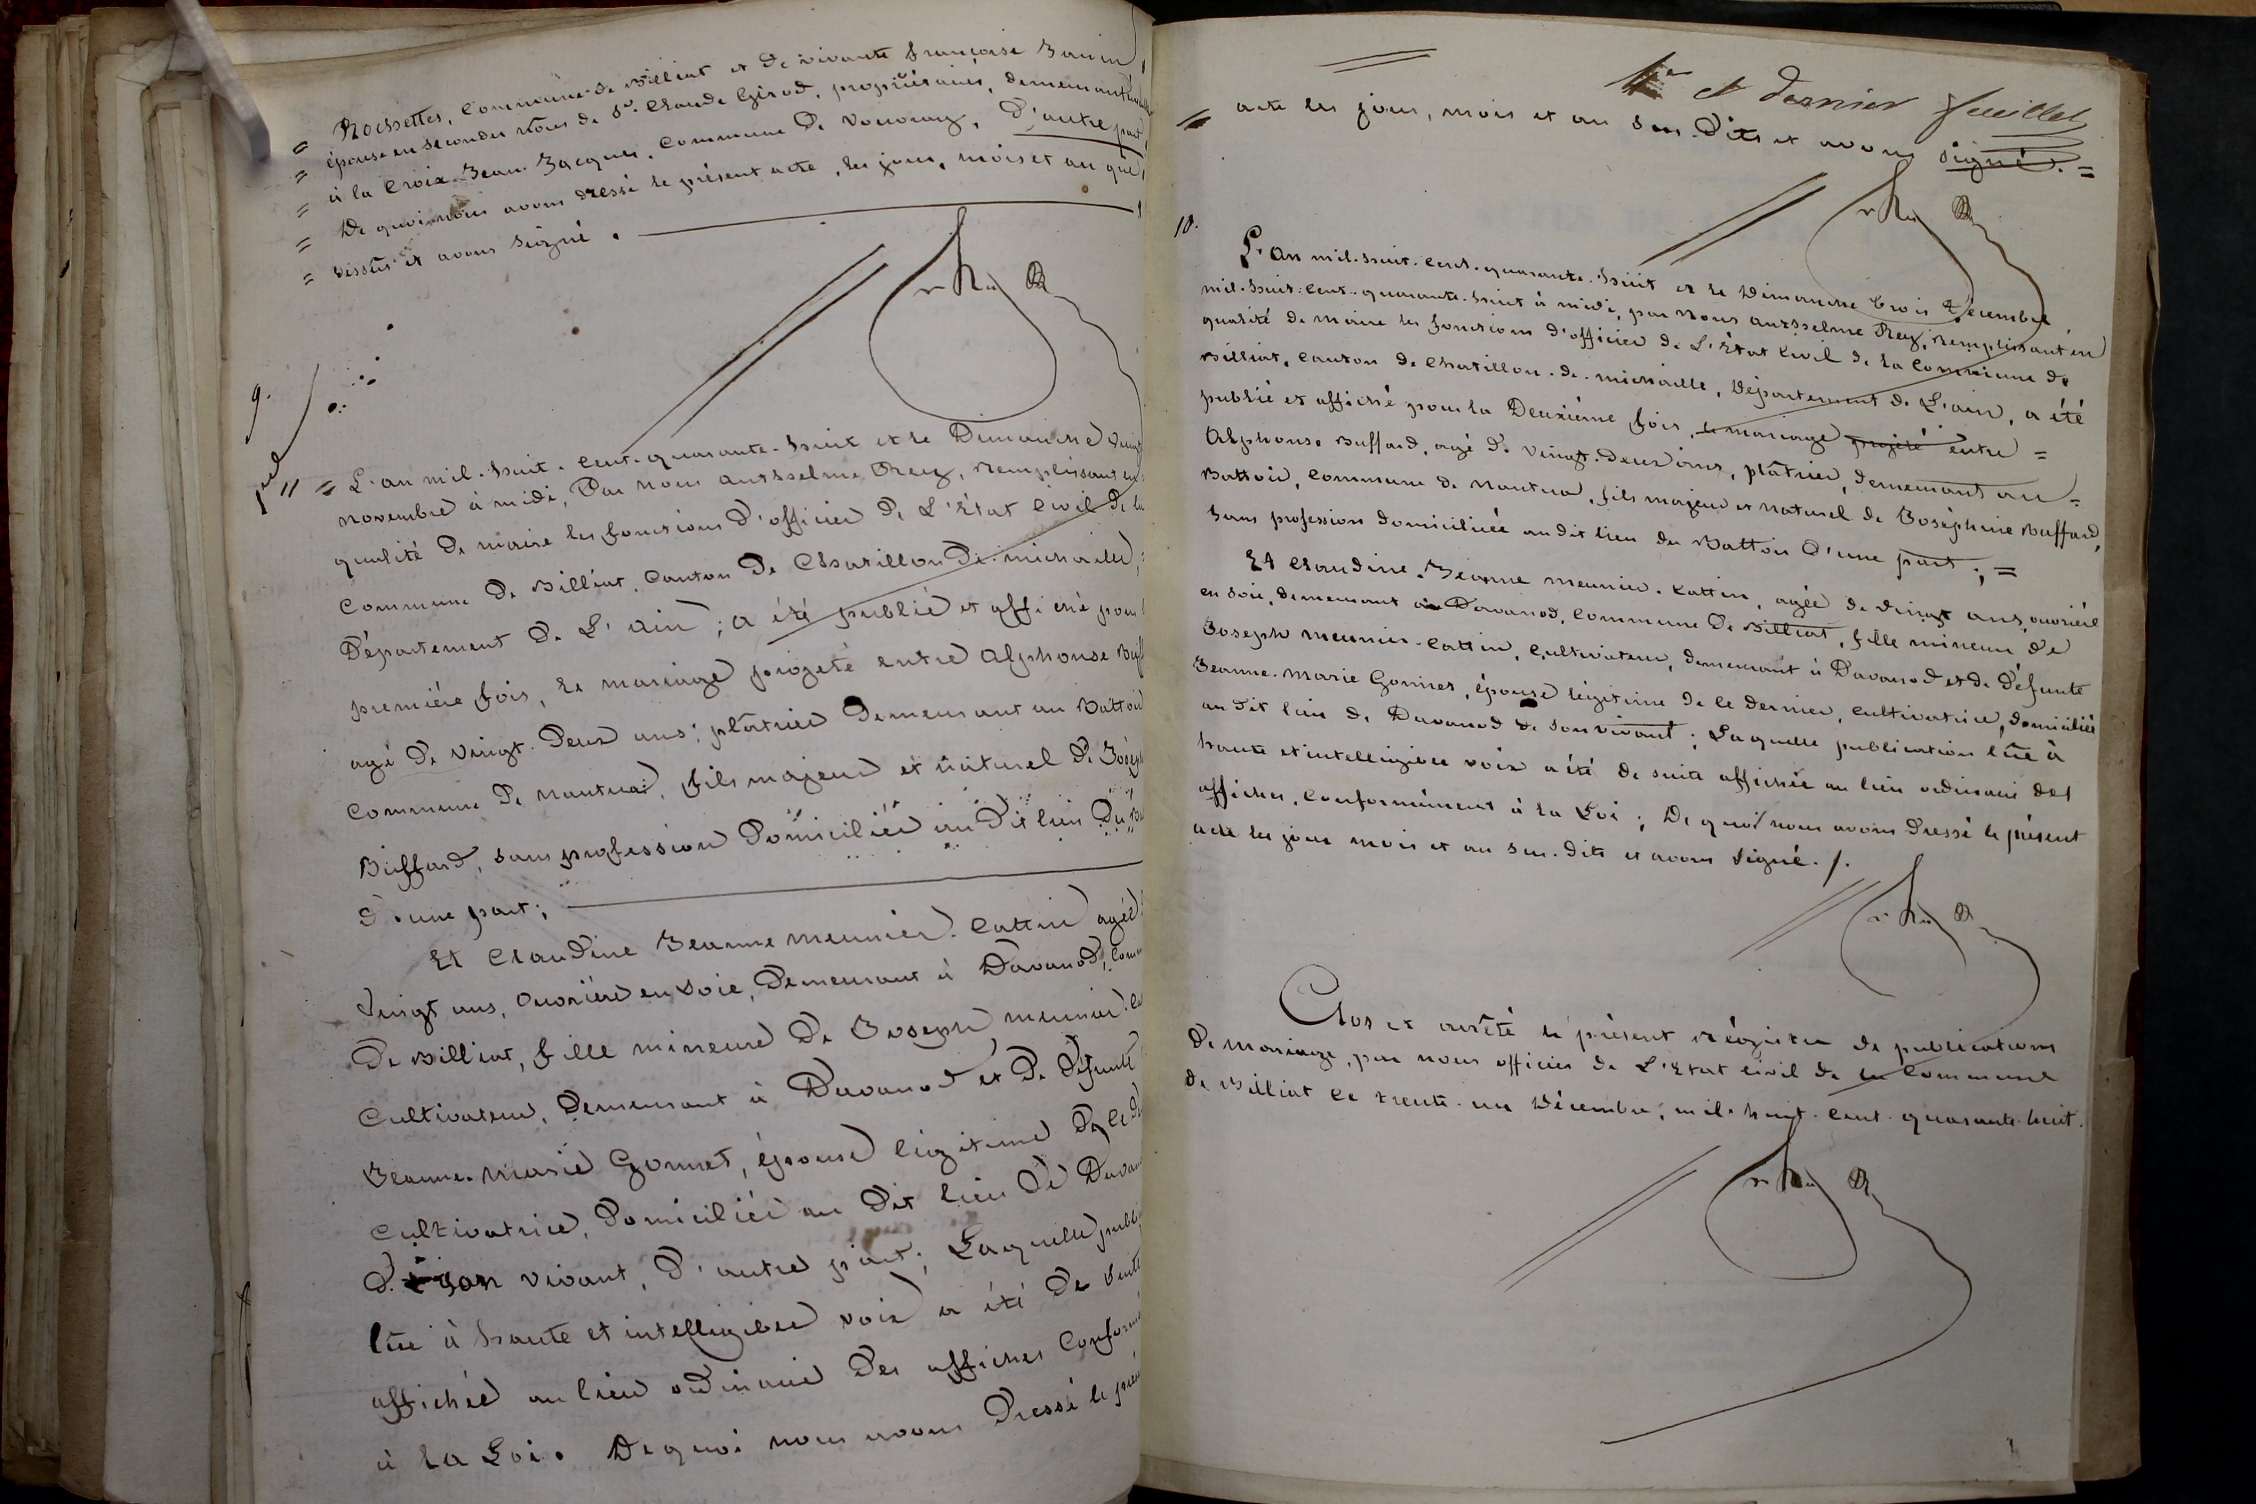 Rochettes, Commune de Billiat et de vivante françoise
épouse en secondes nôces de Sr. Claude Girod, propriétaires, demeurant
à la Croix Jean-Jacques, Commune de Vouvray, D'autre part
De quoi nous avons dressé le présent acte, les jour, mois et an que
dessus et avons signé.
9.
L'an mil-huit-cent-quarante-huit et le Dimanche vingt
novembre à midi, Par nous Anthelme Rey, remplissant en
qualité de maire les fonctions d'officier de L'État Civil de la
Commune de Billiat, Canton de Chatillon de michaille,
Département de L'Ain; a été publié et affiché pour
première fois, le mariage projeté entre Alphonse Buff
agé de vingt-deux ans; plâtrier demeurant au Battoir
Commune de Nantua, fils majeur et naturel de Josép
Buffard, sans profession Domiciliée au dit lieu Du B
d'une part;
Et Claudine Jeanne meunier-Cattin agée
vingt ans, Ouvrière en soie, Demeurant à Davanod, Comm
De Billiat, fille mineure De Joseph meunier-C
Cultivateur, Demeurant à Davanod et De Défunte
Jeanne-Marie Gonnet, épouse légitime De ce d
Cultivatrice, Domiciliée au Dit lieu De Davan
De son vivant, D'autre part; Laquelle publ
lue à haute et intelligible voix a été De suite
affichée au lieu ordinaire Des affiches Conform
à la Loi. De quoi nous avons Dressé le pré
et dernier feuillet
acte les jour, mois et an sus-dits et avons signé.
10.
L'An mil-huit-cent-quarante-huit et le Dimanche trois Décembre
mil-huit-cent-quarante-huit à midi, par nous Anthelme Rey, remplissant en
qualité de maire les fonctions d'officier de L'État Civil de la Commune de
Billiat, Canton de Chatillon-de-michaille, Département de L'Ain, a été
publié et affiché pour la Deuxième fois, le mariage projeté entre
Alphonse Buffard, agé de vingt-deux ans, plâtrier, demeurant au
Battoir, Commune de Nantua, fils majeur et naturel de Joséphine Buffard,
sans profession domiciliée au dit lieu du Battoir d'une part;
Et Claudine-Jeanne meunier-Cattin, agée de vingt ans, ouvrière
en soie, demeurant à Davanod, Commune De Billiat, fille mineure de
Joseph meunier-Cattin, Cultivateur, demeurant à Davanod et de Défunte
Jeanne-Marie Gonnet, épouse légitime de ce dernier, Cultivatrice, domiciliée
au dit lieu de Davanod de son vivant; Laquelle publication lue à
haute et intelligible voix a été de suite affichée au lieu ordinaire des
affiches, Conformément à la Loi; De quoi nous avons dressé le présent
acte les jour mois et an sus-dits et avons signé./.
Clos et arrêté le présent régistre de publications
De Mariage, par nous officier de L'État Civil de la Commune
de Billiat le trente-un Décembre, mil-huit-cent-quarante-huit.